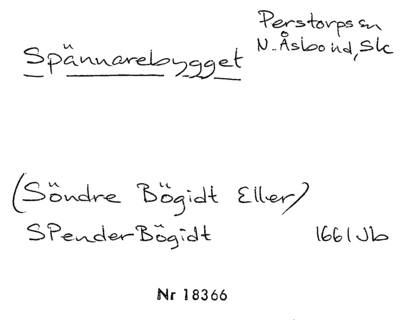 Spännarebygget
Perstorps sn
N. Åsbo hd, Sk
(Söndre Bögidt Eller)
SPenderBögidt 1661 Jb
Nr 18366